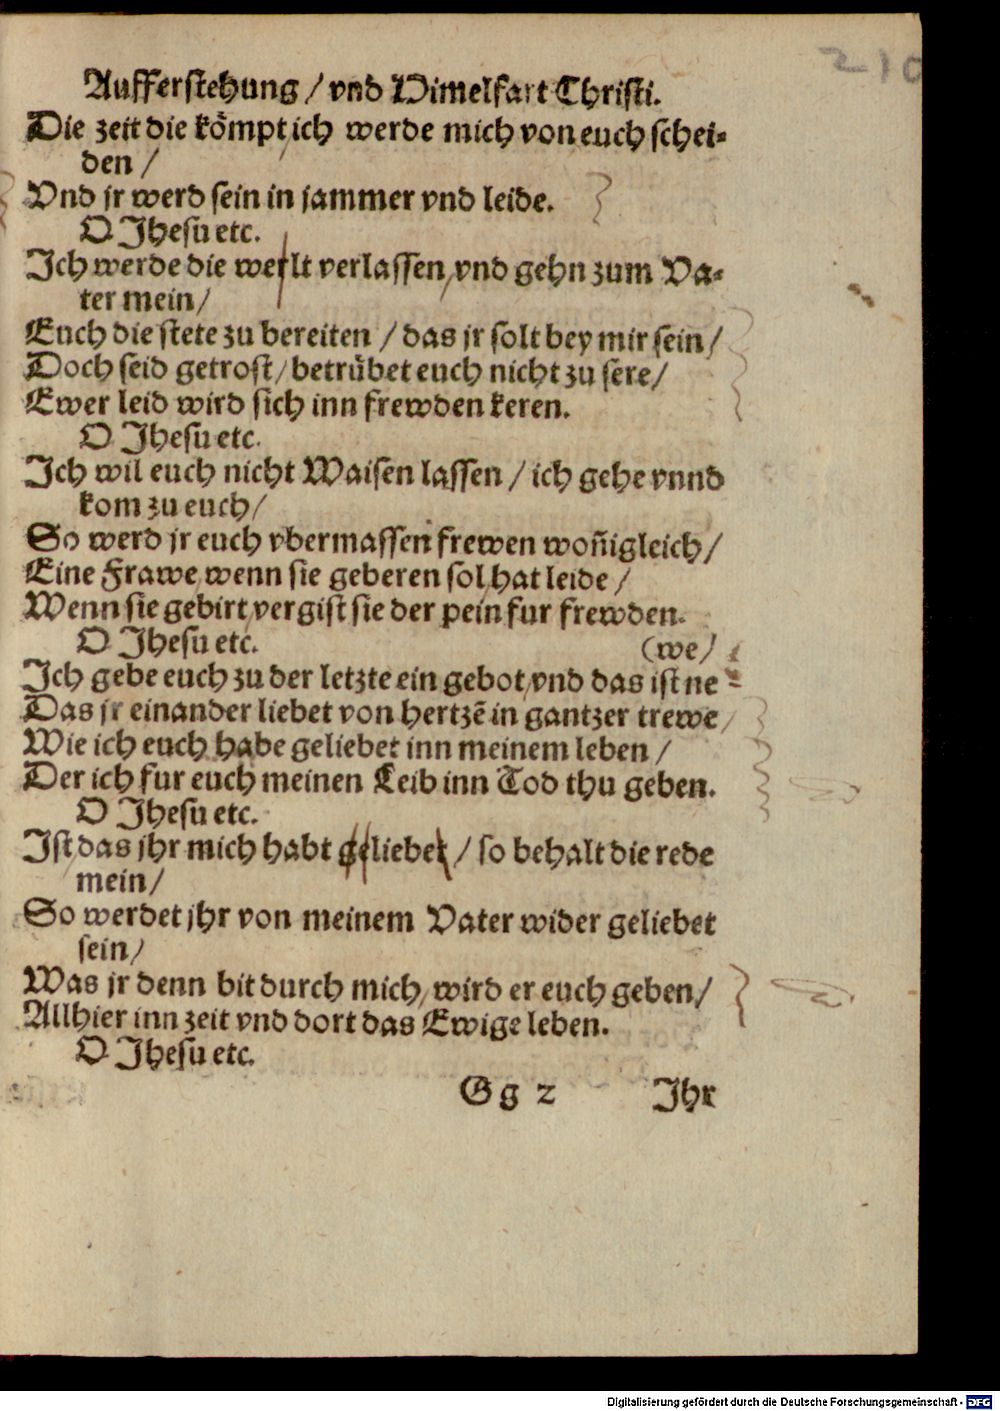 210
Aufferstehung / vnd Himelfart Christi.
Die zeit die kömpt ich werde mich von euch schei-
den /
Vnd jr werd sein in jammer vnd leide.
O Jhesu etc.
Ich werde die welt verlassen, vnd gehn zum Va-
ter mein /
Euch die stete zu bereiten / das jr solt bey mir sein /
Doch seid getrost / betrübet euch nicht zu sere /
Ewer leid wird sich inn frewden keren.
O Jhesu etc.
Ich wil euch nicht Waisen lassen / ich gehe vnnd
kom zu euch /
So werd jr euch vbermassen frewen woñigleich /
Eine Frawe wenn sie geberen sol, hat leide /
Wenn sie gebirt, vergist sie der pein fur frewden.
O Jhesu etc.
(we /
Ich gebe euch zu der letzte ein gebot, vnd das ist ne-
Das jr einander liebet von hertzē in gantzer trewe /
Wie ich euch habe geliebet inn meinem leben /
Der ich fur euch meinen Leib inn Tod thu geben.
O Jhesu etc.
Ist das jhr mich habt geliebet / so behalt die rede
mein /
So werdet jhr von meinem Vater wider geliebet
sein /
Was jr denn bit durch mich, wird er euch geben /
Allhier inn zeit vnd dort das Ewige leben.
O Jhesu etc.
Gg 2 Ihr
Digitalisierung gefördert durch die Deutsche Forschungsgemeinschaft - DFG